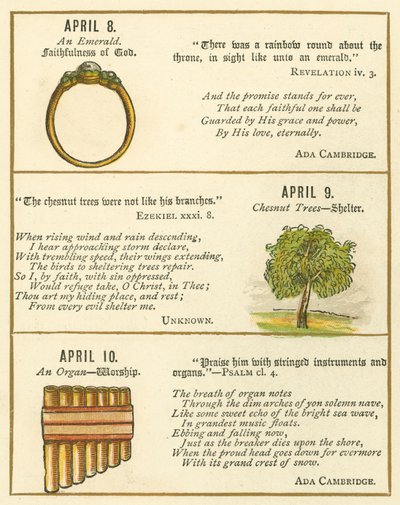 APRIL 8.
An Emerald.
Faithfulness of God.
"There was a rainbow round about the
throne, in sight like unto an emerald."
REVELATION iv. 3.
And the promise stands for ever,
That each faithful one shall be
Guarded by His grace and power,
By His love, eternally.
ADA CAMBRIDGE.
"The chesnut trees were not like his branches."
EZEKIEL xxxi. 8.
When rising wind and rain descending,
I hear approaching storm declare,
With trembling speed, their wings extending,
The birds to sheltering trees repair.
So I, by faith, with sin oppressed,
Would refuge take, O Christ, in Thee;
Thou art my hiding place, and rest;
From every evil shelter me.
UNKNOWN.
APRIL 9.
Chesnut Trees—Shelter.
APRIL 10.
An Organ—Worship.
"Praise him with stringed instruments and
organs."—PSALM cl. 4.
The breath of organ notes
Through the dim arches of yon solemn nave,
Like some sweet echo of the bright sea wave,
In grandest music floats.
Ebbing and falling now,
Just as the breaker dies upon the shore,
When the proud head goes down for evermore
With its grand crest of snow.
ADA CAMBRIDGE.